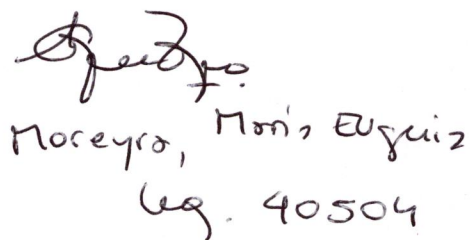 Moreyra, María Eugenia
Leg. 40504